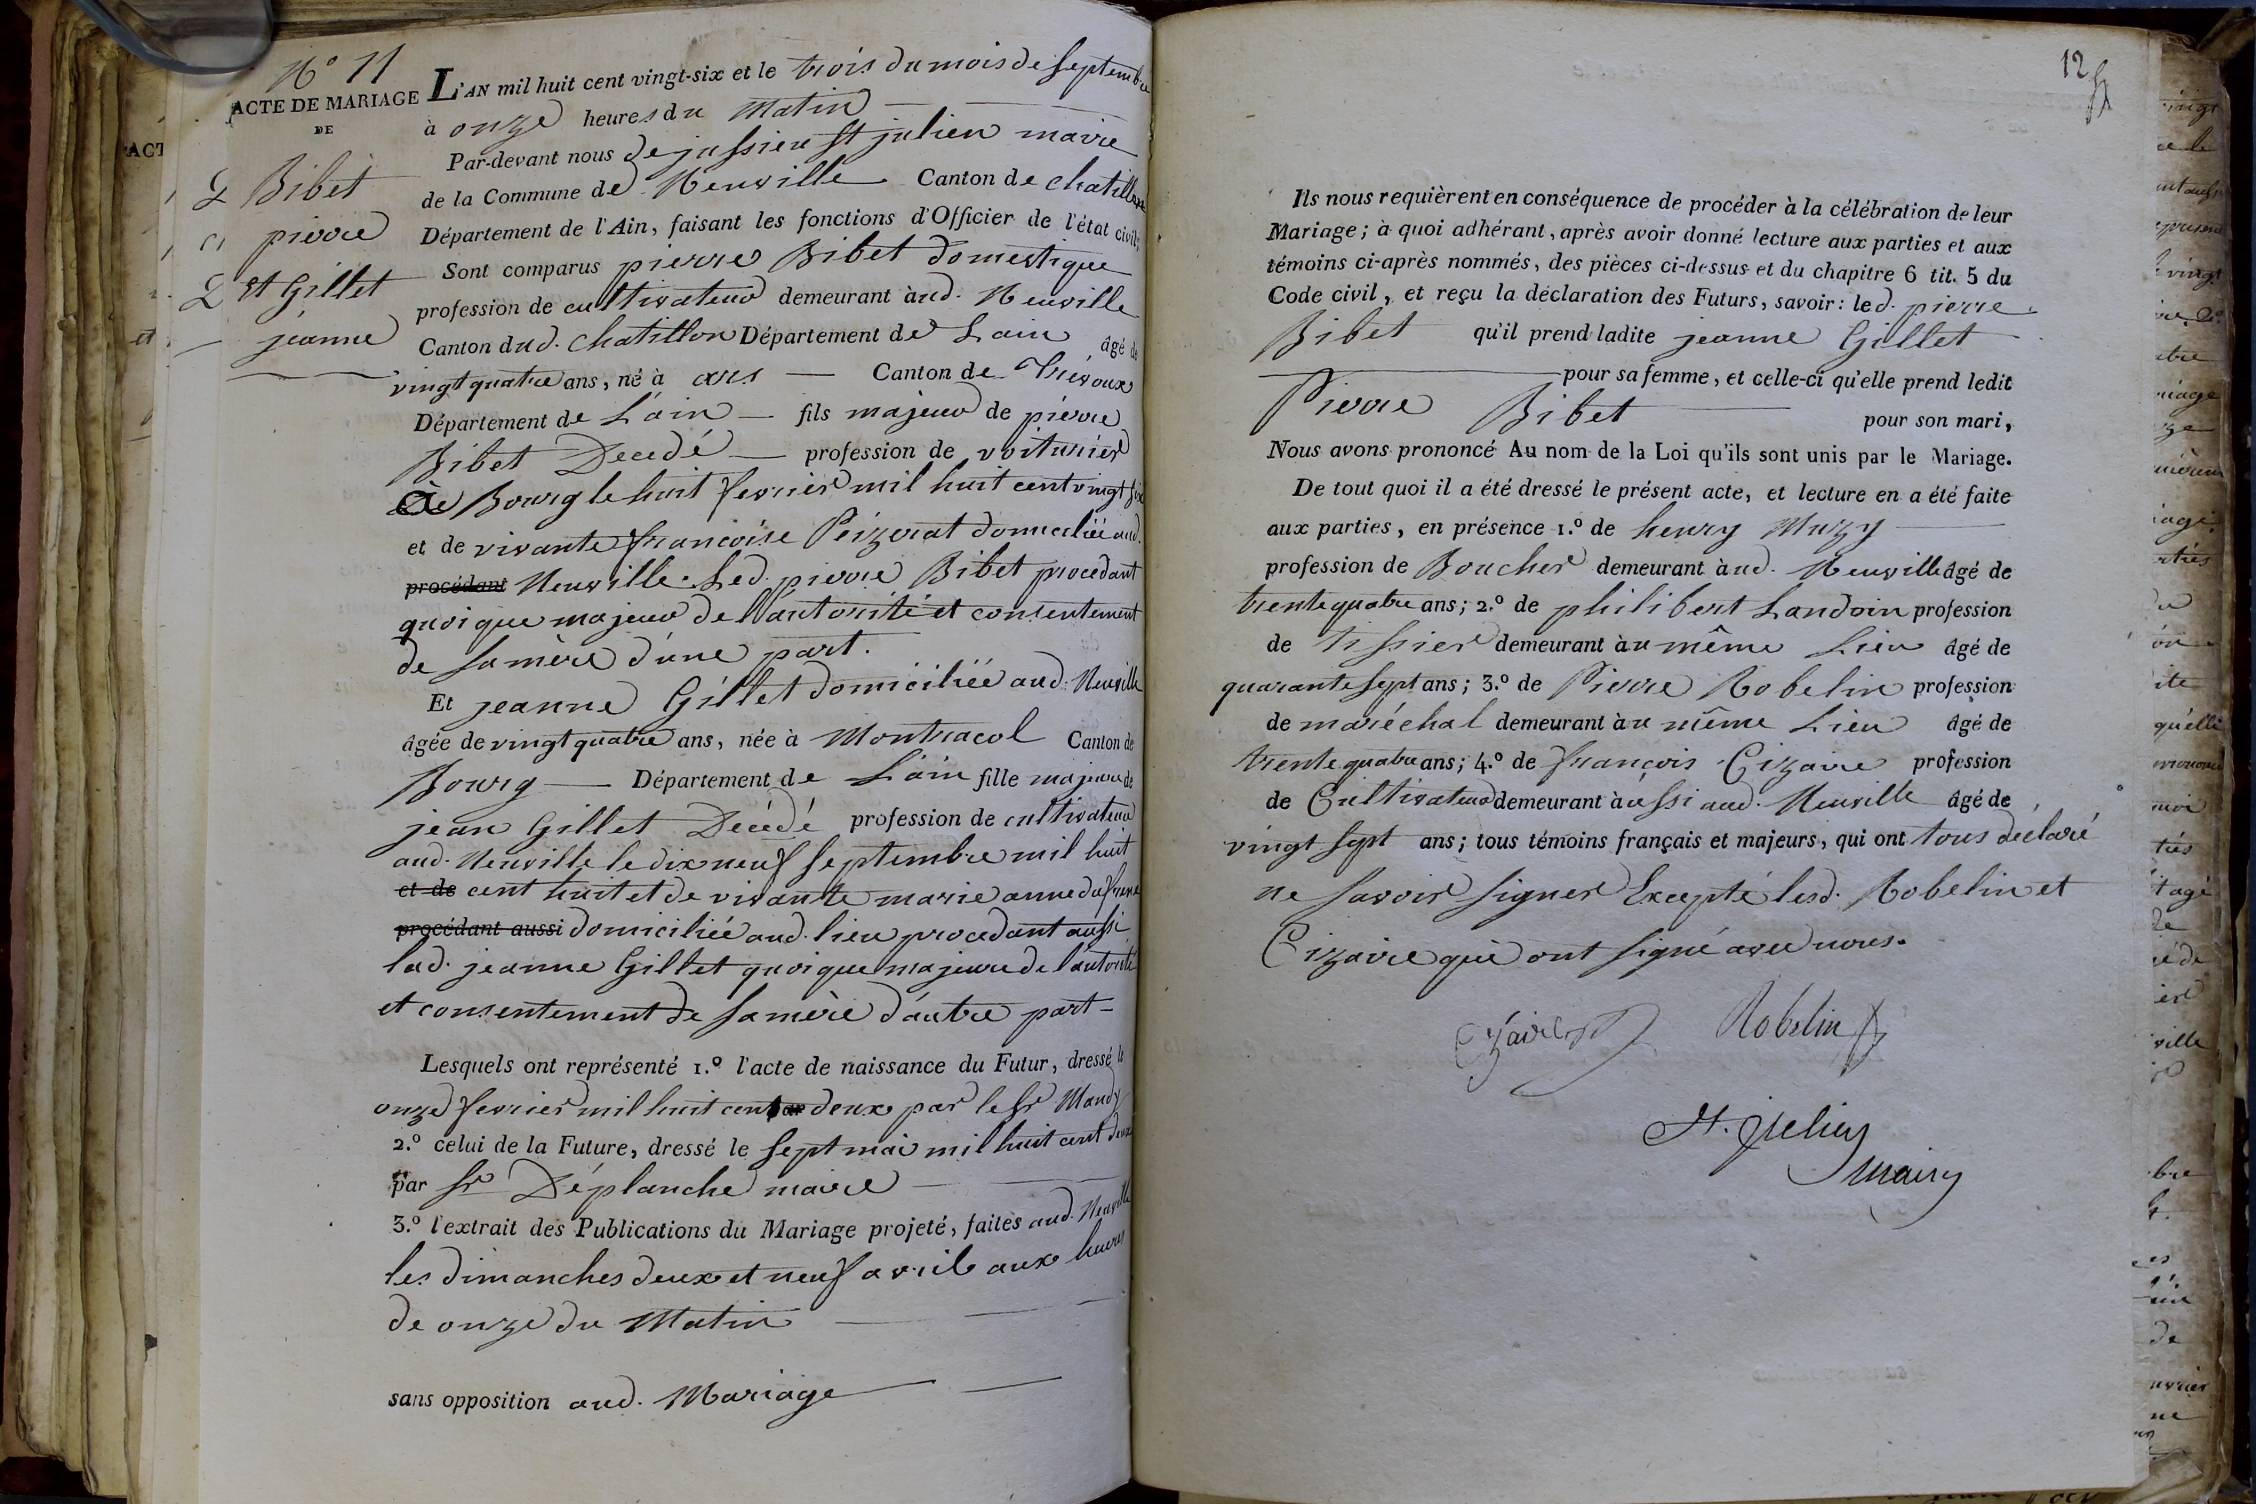 N° 11
ACTE DE MARIAGE
DE
Bibet
pierre
et Gillet
jeanne
L'AN mil huit cent vingt-six et le trois du mois de septembre
à onze heures du Matin
Par-devant nous dejussieu st julien maire
de la Commune de Neuville Canton de chatillon
Département de l'Ain, faisant les fonctions d'Officier de l'état civil;
Sont comparus pierre Bibet domestique
profession de cultivateur demeurant àud. Neuville
Canton dud. chatillon Département de Lain âgé de
vingt quatre ans, né à ars Canton de Trévoux
Département de Láin fils majeur de pierre
Bibet Decedé profession de voiturier
à Bourg le huit fevrier mil huit cent vingt six
et de vivante francoise Peizerat domiciliée aud.
procédant Neuville. Led. pierre Bibet procedant
quoique majeur de l'autorité et consentement
de sa mère d'une part.
Et jeanne Gillet domiciliée aud. Neuville
âgée de vingt quatre ans, née à Montracol Canton de
Bourg Département de Láin fille majeure de
jean Gillet Décédé profession de cultivateur
aud. Neuville le dix neuf septembre mil huit
et de cent huit et de vivante marie anne dufrene
procédant aussi domiciliée aud. lieu procedant aussi
lad. jeanne Gillet quoique majeure de l'autorité
et consentement de sa mère d'autre part
Lesquels ont représenté 1.º l'acte de naissance du Futur, dressé le
onze fevrier mil huit cent deux par le sr Mandy
2.º celui de la Future, dressé le sept mai mil huit cent deux
par sr Déplanche maire
3.º l'extrait des Publications du Mariage projeté, faites aud. Neuville
les dimanches deux et neuf avril aux heures
de onze du Matin
sans opposition aud. Mariage
12
Ils nous requièrent en conséquence de procéder à la célébration de leur
Mariage; à quoi adhérant, après avoir donné lecture aux parties et aux
témoins ci-après nommés, des pièces ci-dessus et du chapitre 6 tit. 5 du
Code civil, et reçu la déclaration des Futurs, savoir: led. pierre
Bibet qu'il prend ladite jeanne Gillet
pour sa femme, et celle-ci qu'elle prend ledit
Pierre Bibet pour son mari,
Nous avons prononcé Au nom de la Loi qu'ils sont unis par le Mariage.
De tout quoi il a été dressé le présent acte, et lecture en a été faite
aux parties, en présence 1.º de henry Muzy
profession de Boucher demeurant àud. Neuville âgé de
trente quatre ans; 2.º de philibert Landoin profession
de tissier demeurant àu même Lieu âgé de
quarante sept ans; 3.º de Pierre Robelin profession
de maréchal demeurant àu même Lieu âgé de
trente quatre ans; 4.º de françois Cizaire profession
de Cultivateur demeurant àussi aud. Neuville âgé de
vingt sept ans; tous témoins français et majeurs, qui ont tous déclaré
ne savoir signer Excepté lesd. Robelin et
Cizaire qui ont signé avec nous.
Robelin
St. Julien
maire